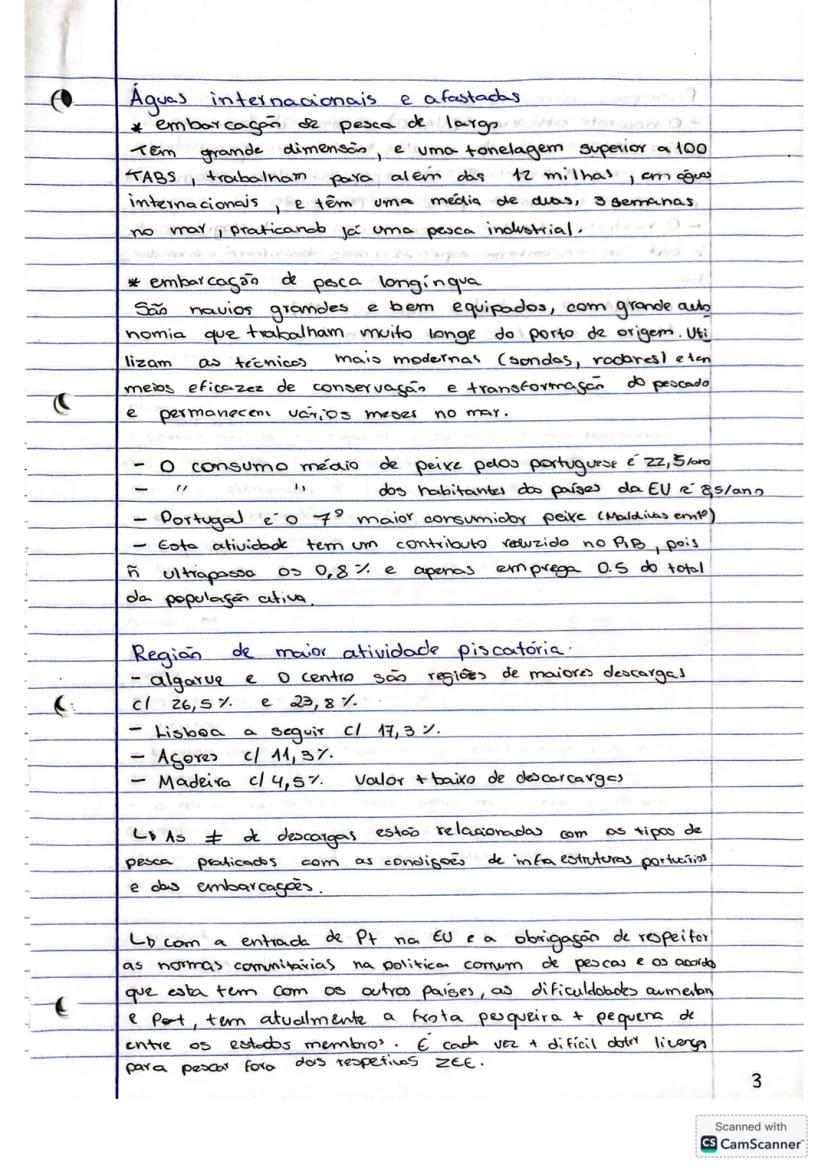 Águas internacionais e afastadas
* embarcação de pesca de largo
Têm grande dimensão, e uma tonelagem superior a 100
TABS, trabalham para além das 12 milhas, em águas
internacionais, e têm uma média de duas, 3 semanas
no mar, praticando já uma pesca industrial.
* embarcação de pesca longínqua
São navios grandes e bem equipados, com grande auto
nomia que trabalham muito longe do porto de origem. Uti
lizam as técnicas mais modernas (sondas, radares) e ten
meios eficazez de conservação e transformação do pescado
e permanecem vários meses no mar.
- O consumo médio de peixe pelos portuguese é 22,5/ano
- " " dos habitantes dos países da EU é 8,5/ano
- Portugal é o 7º maior consumidor peixe (Maldivas em 1º)
- Esta atividade tem um contributo reduzido no PIB, pois
ñ ultrapassa os 0,8% e apenas emprega 0.5 do total
da população ativa.
Região de maior atividade piscatória.
- algarve e o centro são regiões de maiores descargas
c/ 26,5% e 23,8%.
- Lisboa a seguir c/ 17,3%.
- Açores c/ 11,3%.
- Madeira c/ 4,5%. Valor + baixo de descarcargas
↳ As ≠ de descargas estão relacionadas com os tipos de
pesca praticados com as condições de infra estruturas portuários
e das embarcações.
↳ com a entrada de Pt na EU e a obrigação de respeitar
as normas comunitárias na politica comum de pescas e os acordo
que esta tem com os outros países, as dificuldades aumentan
e Port, tem atualmente a frota pesqueira + pequena de
entre os estados membros. É cada vez + difícil obter licença
para pescar fora das respetivas ZEE.
3
Scanned with
CS CamScanner